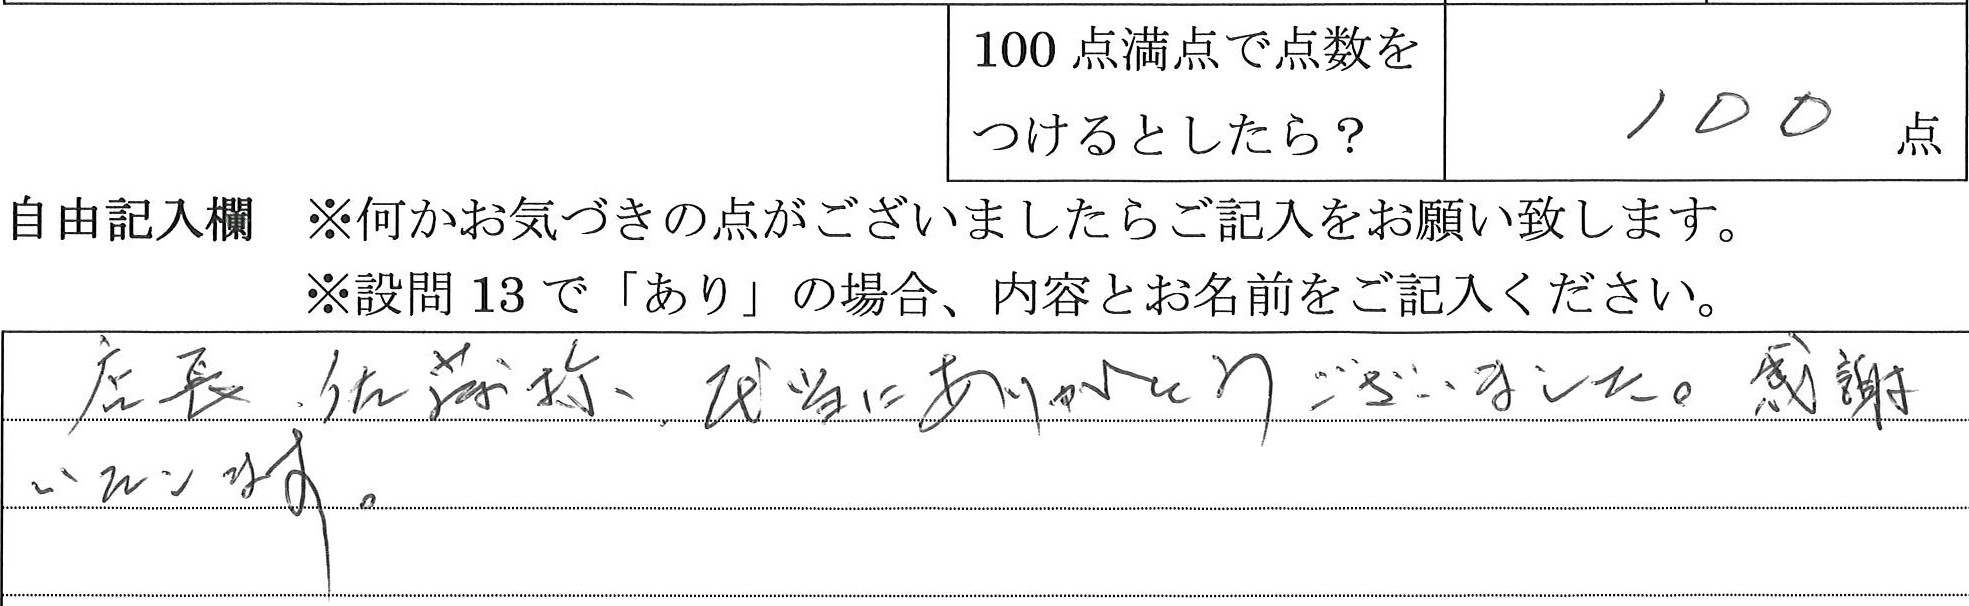 100 点満点で点数を
つけるとしたら?
100 点
自由記入欄 ※何かお気づきの点がございましたらご記入をお願い致します。
※設問 13 で「あり」の場合、内容とお名前をご記入ください。
店長 佐藤様、本当にありがとうございました。感謝
いたします。